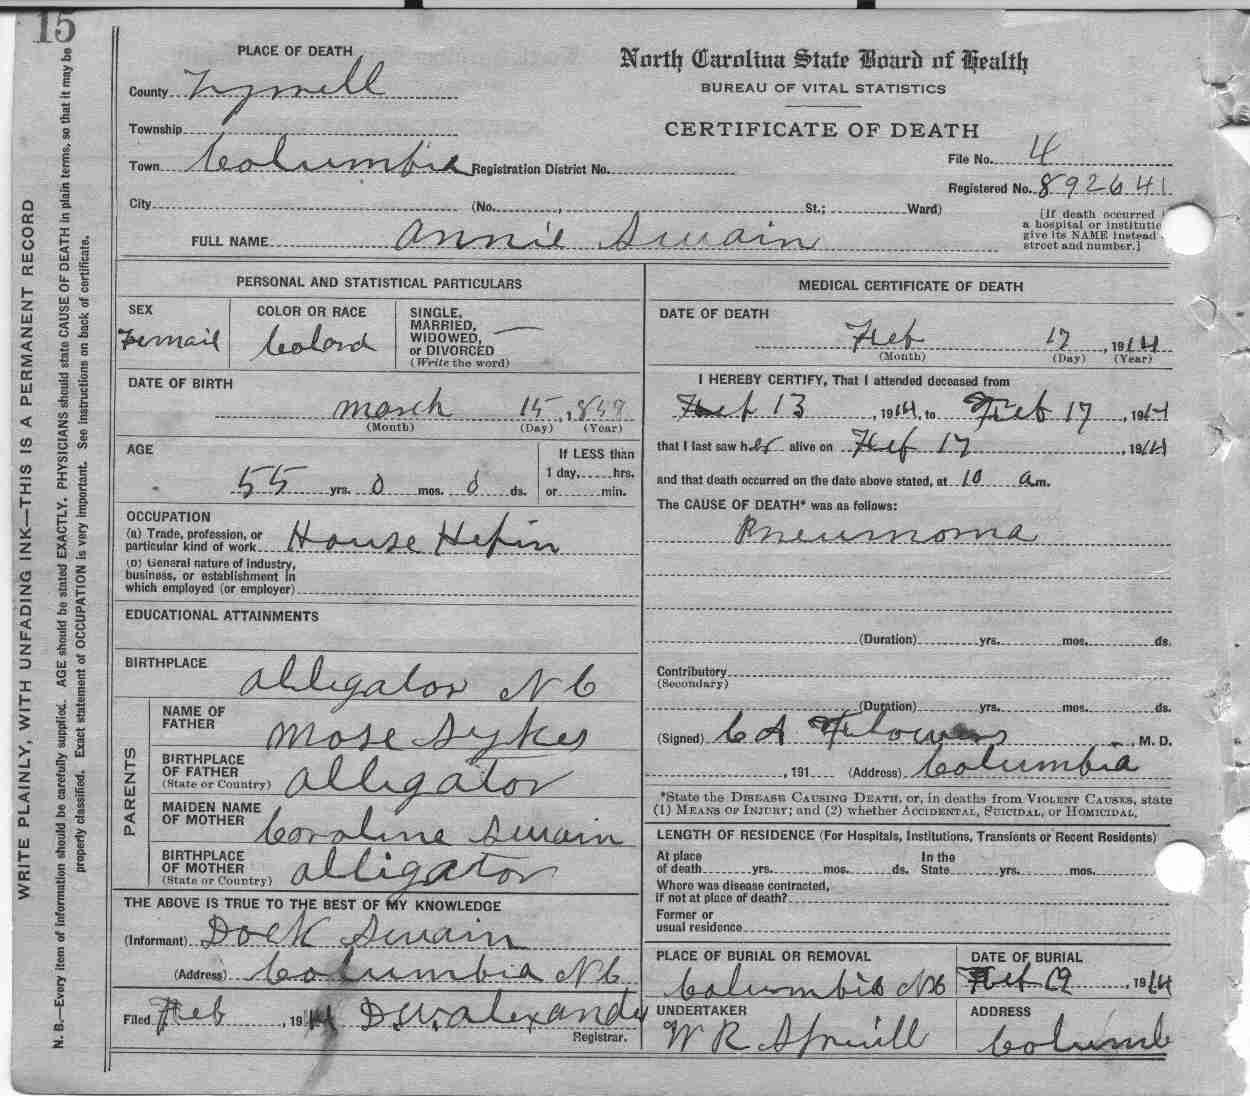 15
WRITE PLAINLY, WITH UNFADING INK—THIS IS A PERMANENT RECORD
N. B.—Every item of information should be carefully supplied. AGE should be stated EXACTLY. PHYSICIANS should state CAUSE OF DEATH in plain terms, so that it may be
properly classified. Exact statement of OCCUPATION is very important. See instructions on back of certificate.
PLACE OF DEATH
County Tyrrell
Township
Town Columbia Registration District No.
City (No. , St.; Ward)
FULL NAME Annie Swain
North Carolina State Board of Health
BUREAU OF VITAL STATISTICS
CERTIFICATE OF DEATH
File No. 4
Registered No. 892641
[If death occurred
a hospital or institutio
give its NAME instead
street and number.]
PERSONAL AND STATISTICAL PARTICULARS
SEX
Femail
COLOR OR RACE
Colord
SINGLE,
MARRIED,
WIDOWED,
or DIVORCED
(Write the word)
DATE OF BIRTH
March 15, 1859
(Month) (Day) (Year)
AGE
55 yrs. 0 mos. 0 ds.
If LESS than
1 day, hrs.
or min.
OCCUPATION
(a) Trade, profession, or
particular kind of work House Hepin
(b) General nature of industry,
business, or establishment in
which employed (or employer)
EDUCATIONAL ATTAINMENTS
BIRTHPLACE
Alligator N C
PARENTS
NAME OF
FATHER
Mose Sykes
BIRTHPLACE
OF FATHER
(State or Country)
Alligator
MAIDEN NAME
OF MOTHER
Caroline Swain
BIRTHPLACE
OF MOTHER
(State or Country)
Alligator
THE ABOVE IS TRUE TO THE BEST OF MY KNOWLEDGE
(Informant) Dock Swain
(Address) Columbia N C
Filed Feb , 1914 D W Alexander
Registrar.
MEDICAL CERTIFICATE OF DEATH
DATE OF DEATH
Feb 17, 1914
(Month) (Day) (Year)
I HEREBY CERTIFY, That I attended deceased from
Feb 13, 1914, to Feb 17, 1914
that I last saw her alive on Feb 17, 1914
and that death occurred on the date above stated, at 10 a m.
The CAUSE OF DEATH* was as follows:
Pneumonia
(Duration) yrs. mos. ds.
Contributory
(Secondary)
(Duration) yrs. mos. ds.
(Signed) C A Flowers, M. D.
, 191 (Address) Columbia
*State the DISEASE CAUSING DEATH, or, in deaths from VIOLENT CAUSES, state
(1) MEANS OF INJURY; and (2) whether ACCIDENTAL, SUICIDAL, or HOMICIDAL.
LENGTH OF RESIDENCE (For Hospitals, Institutions, Transients or Recent Residents)
At place In the
of death yrs. mos. ds. State yrs. mos.
Where was disease contracted,
if not at place of death?
Former or
usual residence
PLACE OF BURIAL OR REMOVAL
Columbia N C
DATE OF BURIAL
Feb 19 1914
UNDERTAKER
W R Spruill
ADDRESS
Columb